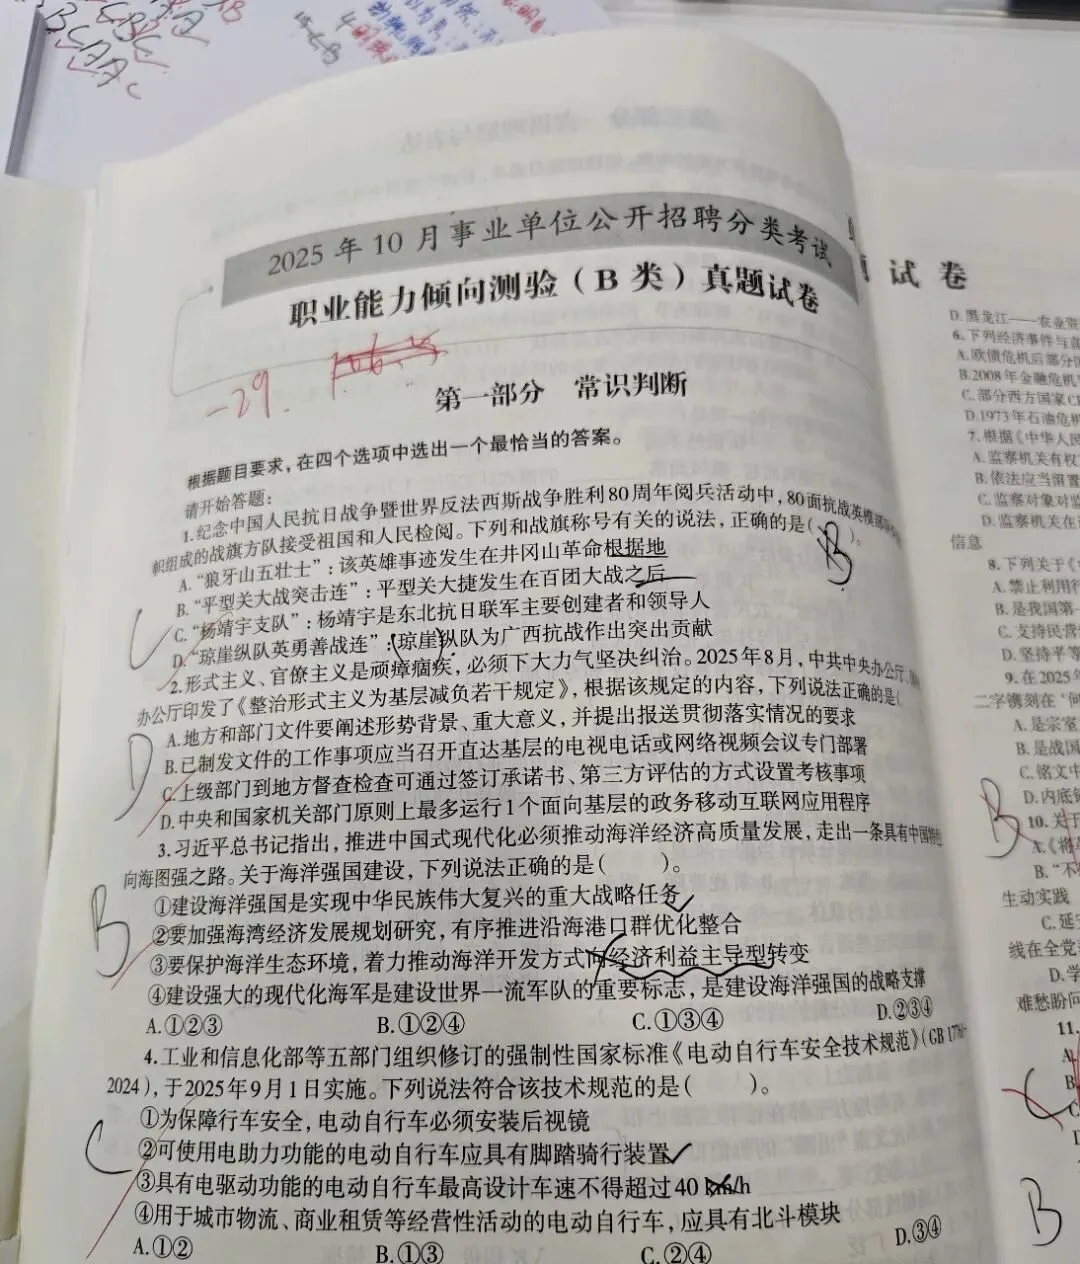 2025 年 10 月事业单位公开招聘分类考试
职业能力倾向测验（B 类）真题试卷
-29.
第一部分　常识判断
根据题目要求，在四个选项中选出一个最恰当的答案。
请开始答题：
1.纪念中国人民抗日战争暨世界反法西斯战争胜利80周年阅兵活动中，80面抗战英模部队
帜组成的战旗方队接受祖国和人民检阅。下列和战旗称号有关的说法，正确的是（　　）。
B
A.“狼牙山五壮士”：该英雄事迹发生在井冈山革命根据地
B.“平型关大战突击连”：平型关大捷发生在百团大战之后
C.“杨靖宇支队”：杨靖宇是东北抗日联军主要创建者和领导人
D.“琼崖纵队英勇善战连”：琼崖纵队为广西抗战作出突出贡献
2.形式主义、官僚主义是顽瘴痼疾，必须下大力气坚决纠治。2025年8月，中共中央办公厅、
办公厅印发了《整治形式主义为基层减负若干规定》，根据该规定的内容，下列说法正确的是（
A.地方和部门文件要阐述形势背景、重大意义，并提出报送贯彻落实情况的要求
D
B.已制发文件的工作事项应当召开直达基层的电视电话或网络视频会议专门部署
C.上级部门到地方督查检查可通过签订承诺书、第三方评估的方式设置考核事项
D.中央和国家机关部门原则上最多运行1个面向基层的政务移动互联网应用程序
3.习近平总书记指出，推进中国式现代化必须推动海洋经济高质量发展，走出一条具有中国特色
向海图强之路。关于海洋强国建设，下列说法正确的是（　　）。
①建设海洋强国是实现中华民族伟大复兴的重大战略任务
B
②要加强海湾经济发展规划研究，有序推进沿海港口群优化整合
③要保护海洋生态环境，着力推动海洋开发方式向经济利益主导型转变
④建设强大的现代化海军是建设世界一流军队的重要标志，是建设海洋强国的战略支撑
A.①②③　B.①②④　C.①③④　D.②③④
4.工业和信息化部等五部门组织修订的强制性国家标准《电动自行车安全技术规范》（GB 177
2024），于2025年9月1日实施。下列说法符合该技术规范的是（　　）。
①为保障行车安全，电动自行车必须安装后视镜
C
②可使用电助力功能的电动自行车应具有脚踏骑行装置
③具有电驱动功能的电动自行车最高设计车速不得超过40 km/h
④用于城市物流、商业租赁等经营性活动的电动自行车，应具有北斗模块
A.①②　B.①③　C.②④　D.③④
试 卷
D.黑龙江——农业
6.下列经济事件与
A.欧债危机后部分
B.2008年金融危机
C.部分西方国家
D.1973年石油危机
7.根据《中华人民
A.监察机关有权
B.依法应当留置
C.监察对象对监
D.监察机关在
信息
8.下列关于《
A.禁止利用
B.是我国第一
C.支持民营
D.坚持平等
9.在2025年
二字镌刻在“
A.是宗室
B.是战国
C.铭文中
D.内底
B
10.关于
A.《将
B.“不
生动实践
C.延
线在全党
D.学
难愁盼问
11.
A.
B
C
B